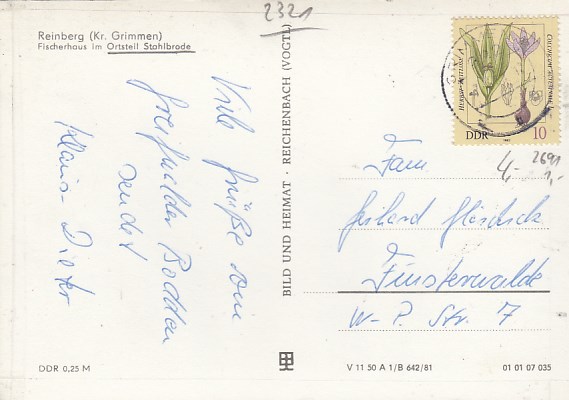 2321
Reinberg (Kr. Grimmen)
Fischerhaus im Ortsteil Stahlbrode
Viele Grüße vom
Greifswalder Bodden
sendet
Klaus-Dieter
BILD UND HEIMAT · REICHENBACH (VOGTL)
DDR 10
4,- 2691
1,-
Fam.
Gerhard
Finsterwalde
W.-P. Str. 7
DDR 0,25 M
V 11 50 A 1/B 642/81
01 01 07 035